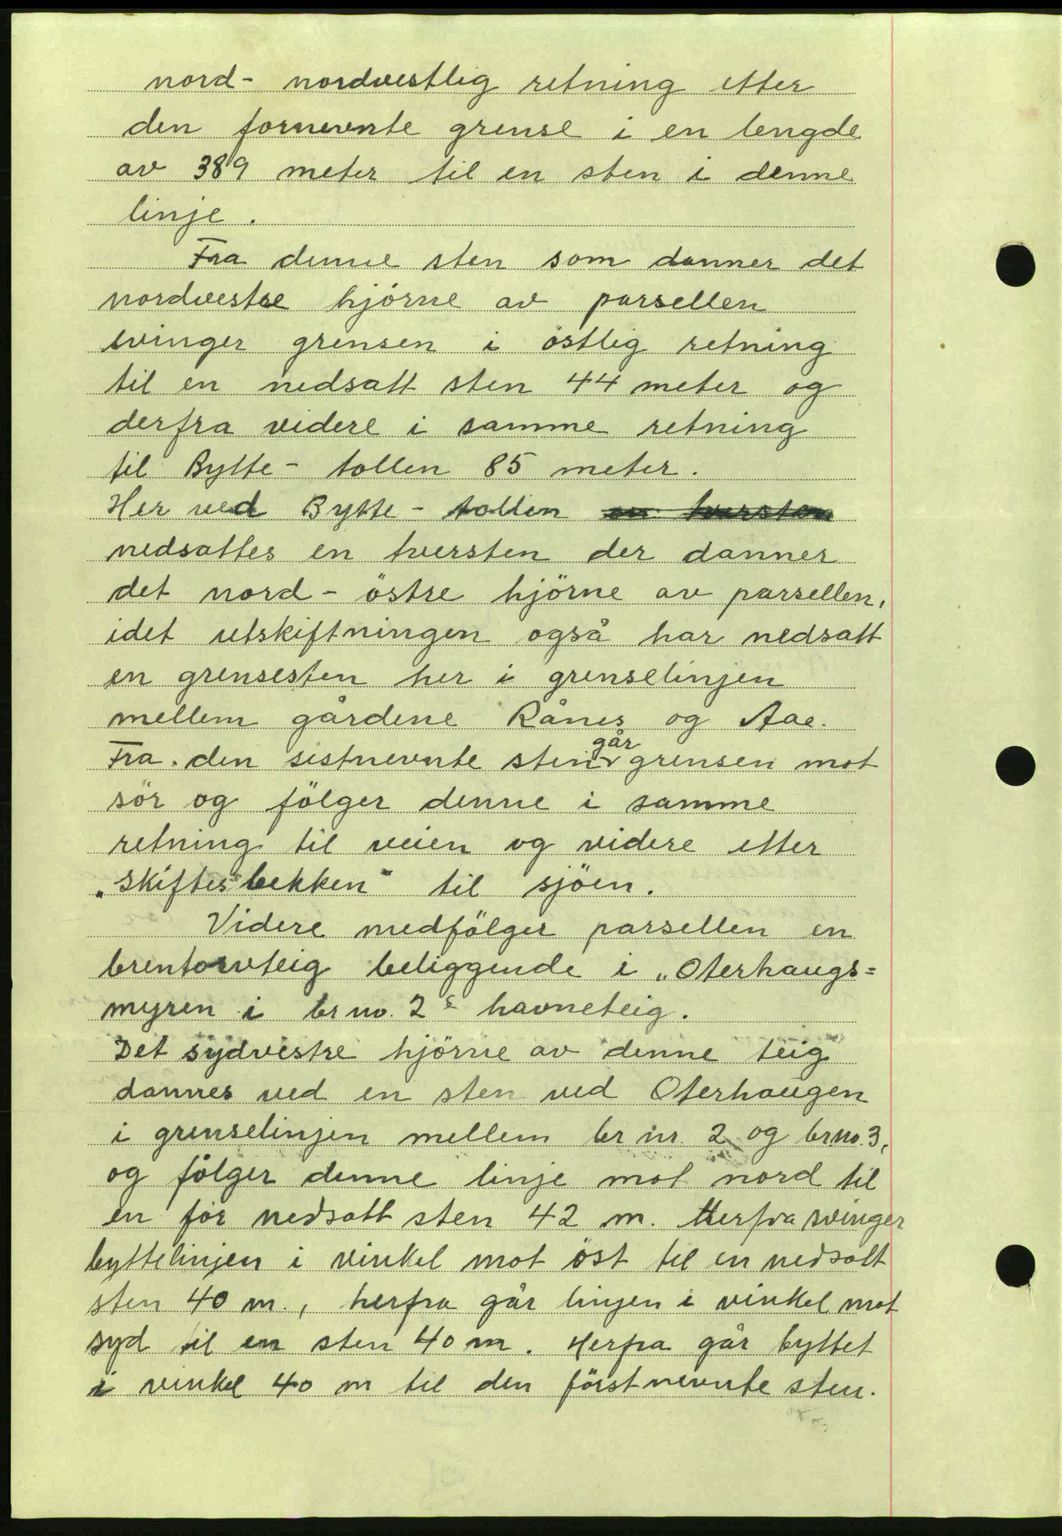 nord- nordvestlig retning etter
den fornevnte grense i en lengde
av 389 meter til en sten i denne
linje.
Fra denne sten som danner det
nordvestre hjörne av parsellen
svinger grensen i östlig retning
til en nedsatt sten 44 meter og
derfra videre i samme retning
til Bytte- tollen 85 meter.
Her ved Bytte- tollen en hversten
nedsattes en hversten der danner
det nord- östre hjörne av parsellen,
idet utskiftningen også har nedsatt
en grensesten her i grenselinjen
mellem gårdene Rånes og Aae.
Fra den sistnevnte sten går grensen mot
sör og fölger denne i samme
retning til veien og videre etter
"skiftesbekken" til sjöen.
Videre medfölger parsellen en
brentorvteig beliggende i „Oterhaugs=
myren i br no. 2s havneteig.
Det sydvestre hjörne av denne teig
dannes ved en sten ved Oterhaugen
i grenselinjen mellem br nr 2 og brno. 3,
og fölger denne linje mot nord til
en för nedsatt sten 42 m. Herfra svinger
byttelinjen i vinkel mot öst til en nedsatt
sten 40 m., herfra går linjen i vinkel mot
syd til en sten 40 m. Herfra går byttet
i vinkel 40 m til den förstnevnte sten.